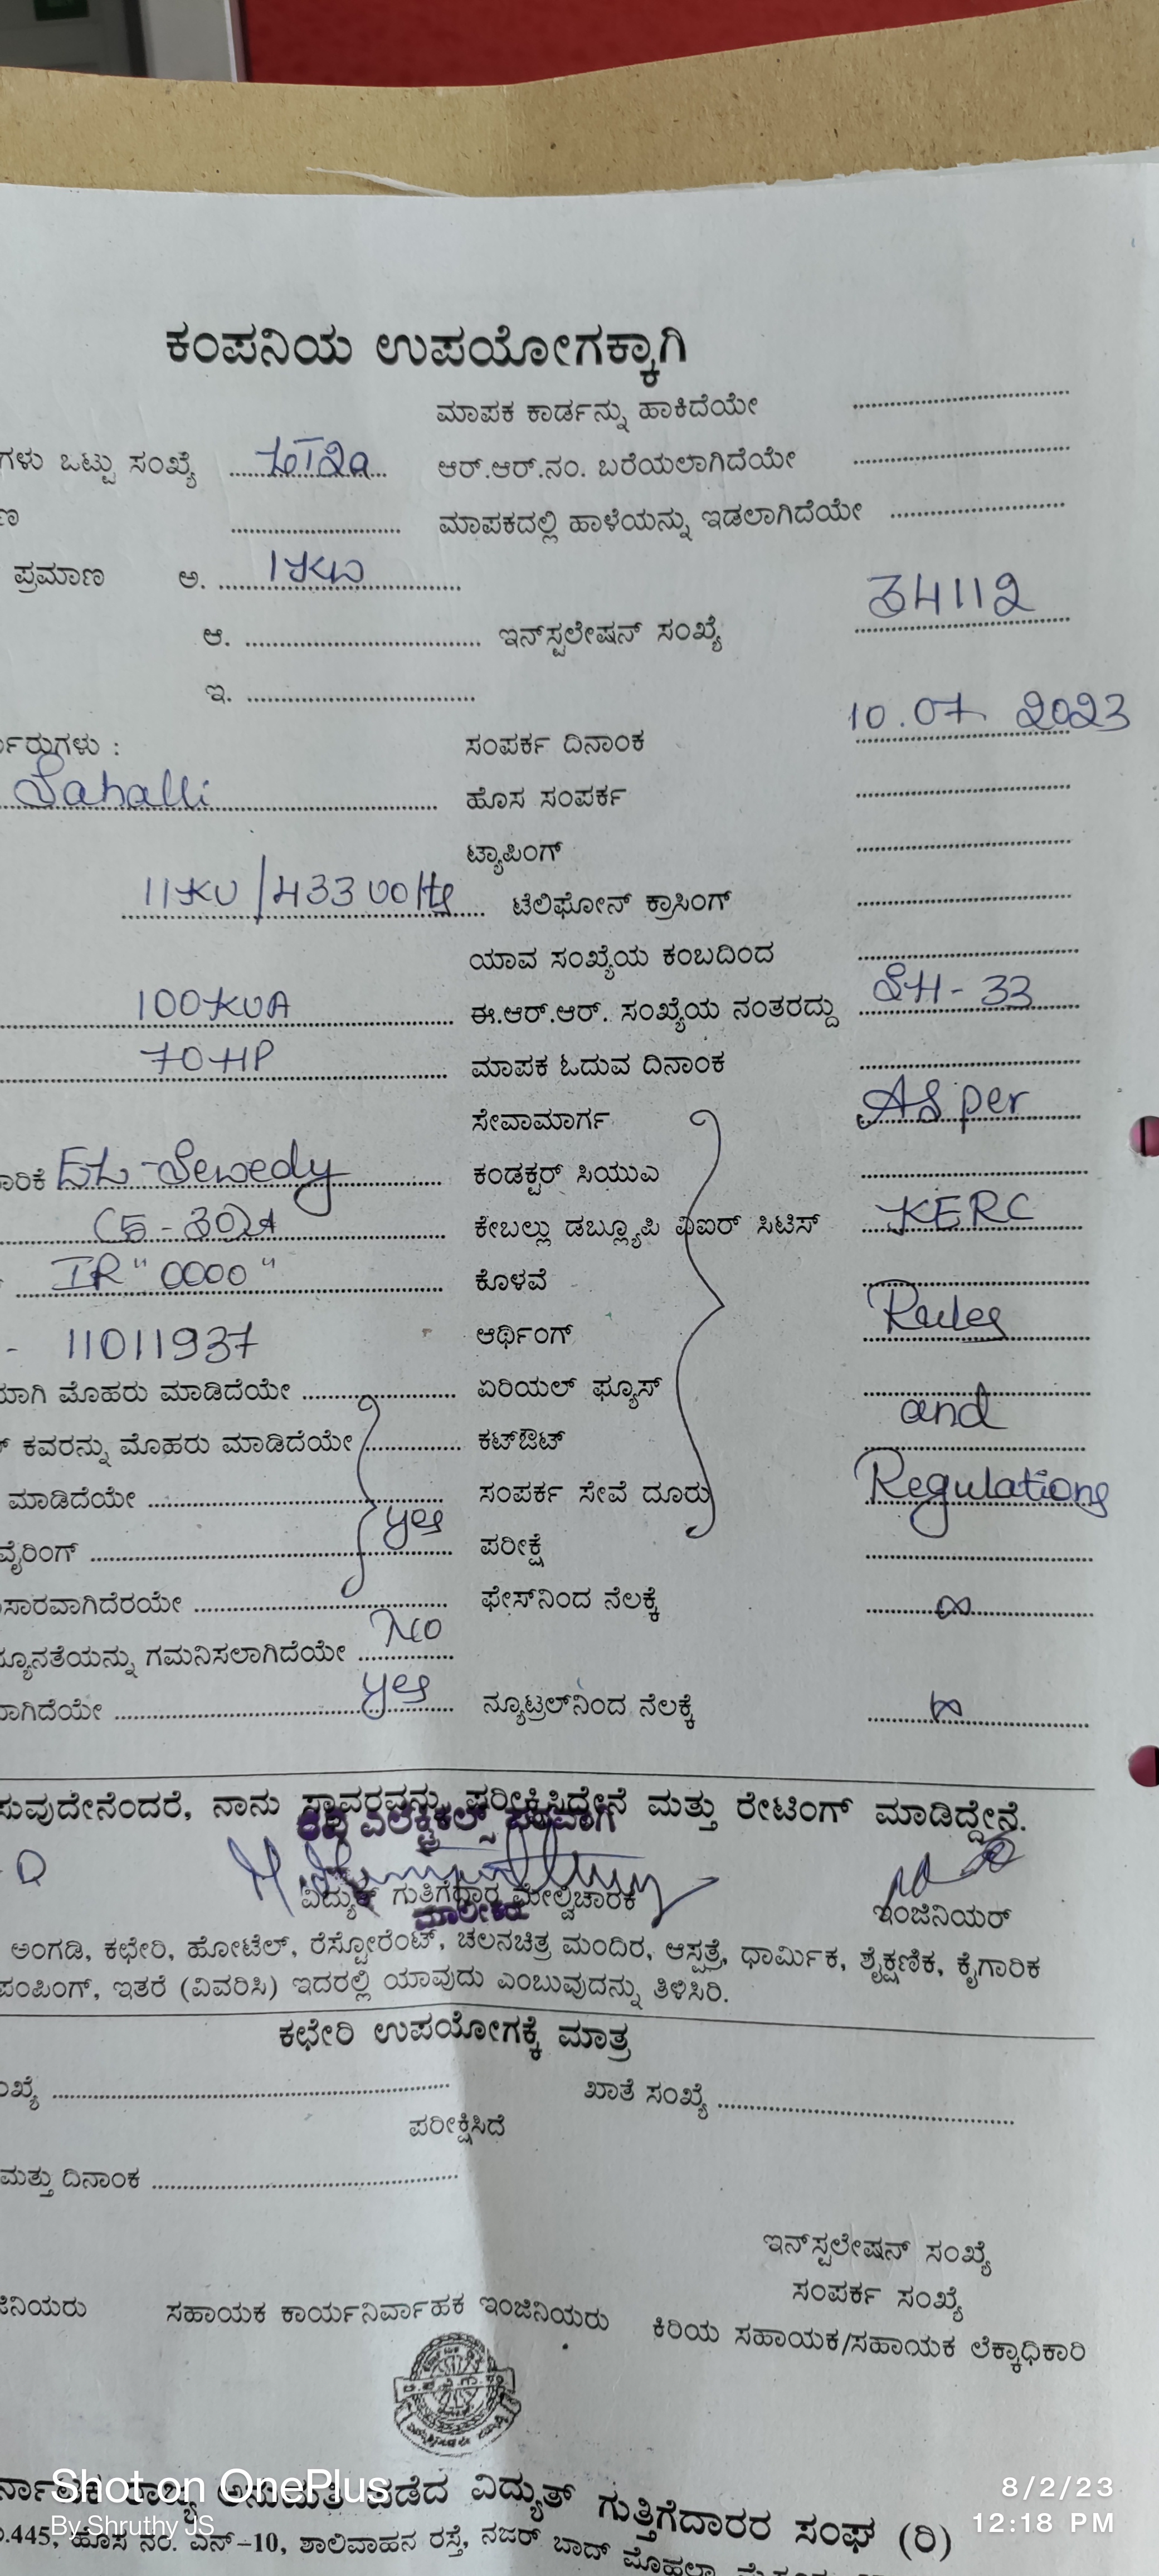 ಕಂಪನಿಯ ಉಪಯೋಗಕ್ಕಾಗಿ
ಮಾಪಕ ಕಾರ್ಡನ್ನು ಹಾಕಿದೆಯೇ
ಗಳು ಒಟ್ಟು ಸಂಖ್ಯೆ ಆರ್.ಆರ್.ನಂ. ಬರೆಯಲಾಗಿದೆಯೇ
ಣ ಮಾಪಕದಲ್ಲಿ ಹಾಳೆಯನ್ನು ಇಡಲಾಗಿದೆಯೇ
ಪ್ರಮಾಣ ಅ. 1KW
ಆ. ಇನ್‌ಸ್ಟಲೇಷನ್ ಸಂಖ್ಯೆ 34112
ಇ.
ರ್ಯರುಗಳು : ಸಂಪರ್ಕ ದಿನಾಂಕ 10.07.2023
Sahalli ಹೊಸ ಸಂಪರ್ಕ
ಟ್ಯಾಪಿಂಗ್
11KV/433 Volts ಟೆಲಿಫೋನ್ ಕ್ರಾಸಿಂಗ್
ಯಾವ ಸಂಖ್ಯೆಯ ಕಂಬದಿಂದ
100KVA ಈ.ಆರ್.ಆರ್. ಸಂಖ್ಯೆಯ ನಂತರದ್ದು SH-33
70HP ಮಾಪಕ ಓದುವ ದಿನಾಂಕ
ಸೇವಾಮಾರ್ಗ As per
ಾರಿಕೆ EL-Sewedy ಕಂಡಕ್ಟರ್ ಸಿಯುಎ
ಕೇಬಲ್ಲು ಡಬ್ಲ್ಯೂಪಿ ವಿಐರ್ ಸಿಟಿಸ್ KERC
IR "0000" ಕೊಳವೆ
- 11011937 ಆರ್ಥಿಂಗ್ Rules
ಯಾಗಿ ಮೊಹರು ಮಾಡಿದೆಯೇ ಏರಿಯಲ್ ಫ್ಯೂಸ್
and
ಕವರನ್ನು ಮೊಹರು ಮಾಡಿದೆಯೇ ಕಟ್‌ಔಟ್
ಮಾಡಿದೆಯೇ ಸಂಪರ್ಕ ಸೇವೆ ದೂರು Regulations
ವೈರಿಂಗ್ yes ಪರೀಕ್ಷೆ
ಸಾರವಾಗಿದೆರಯೇ ಫೇಸ್‌ನಿಂದ ನೆಲಕ್ಕೆ ∞
ನ್ಯೂನತೆಯನ್ನು ಗಮನಿಸಲಾಗಿದೆಯೇ No
ಾಗಿದೆಯೇ yes ನ್ಯೂಟ್ರಲ್‌ನಿಂದ ನೆಲಕ್ಕೆ
ಸುವುದೇನೆಂದರೆ, ನಾನು ಸ್ಥಾವರವನ್ನು ಪರೀಕ್ಷಿಸಿದ್ದೇನೆ ಮತ್ತು ರೇಟಿಂಗ್ ಮಾಡಿದ್ದೇನೆ.
ಎಲೆಕ್ಟ್ರಿಕಲ್ಸ್ ಪರವಾಗಿ
ವಿದ್ಯುತ್ ಗುತ್ತಿಗೆದಾರ ಮೇಲ್ವಿಚಾರಕ ಇಂಜಿನಿಯರ್
ಮಾಲೀಕರು
ಅಂಗಡಿ, ಕಛೇರಿ, ಹೋಟೆಲ್, ರೆಸ್ಟೋರೆಂಟ್, ಚಲನಚಿತ್ರ ಮಂದಿರ, ಆಸ್ಪತ್ರೆ, ಧಾರ್ಮಿಕ, ಶೈಕ್ಷಣಿಕ, ಕೈಗಾರಿಕ
ಪಂಪಿಂಗ್, ಇತರೆ (ವಿವರಿಸಿ) ಇದರಲ್ಲಿ ಯಾವುದು ಎಂಬುವುದನ್ನು ತಿಳಿಸಿರಿ.
ಕಛೇರಿ ಉಪಯೋಗಕ್ಕೆ ಮಾತ್ರ
ಂಖ್ಯೆ ಖಾತೆ ಸಂಖ್ಯೆ
ಪರೀಕ್ಷಿಸಿದೆ
ಮತ್ತು ದಿನಾಂಕ
ಇನ್‌ಸ್ಟಲೇಷನ್ ಸಂಖ್ಯೆ
ಸಂಪರ್ಕ ಸಂಖ್ಯೆ
ಜಿನಿಯರು ಸಹಾಯಕ ಕಾರ್ಯನಿರ್ವಾಹಕ ಇಂಜಿನಿಯರು ಕಿರಿಯ ಸಹಾಯಕ/ಸಹಾಯಕ ಲೆಕ್ಕಾಧಿಕಾರಿ
ರ್ನಾಟಕ ರಾಜ್ಯ ಅನುಮತಿ ಪಡೆದ ವಿದ್ಯುತ್ ಗುತ್ತಿಗೆದಾರರ ಸಂಘ (ರಿ)
.445, ಹೊಸ ನಂ. ಎನ್-10, ಶಾಲಿವಾಹನ ರಸ್ತೆ, ನಜರ್ ಬಾದ್ ಮೊಹಲ್ಲಾ
Shot on OnePlus
By Shruthy JS
8/2/23
12:18 PM